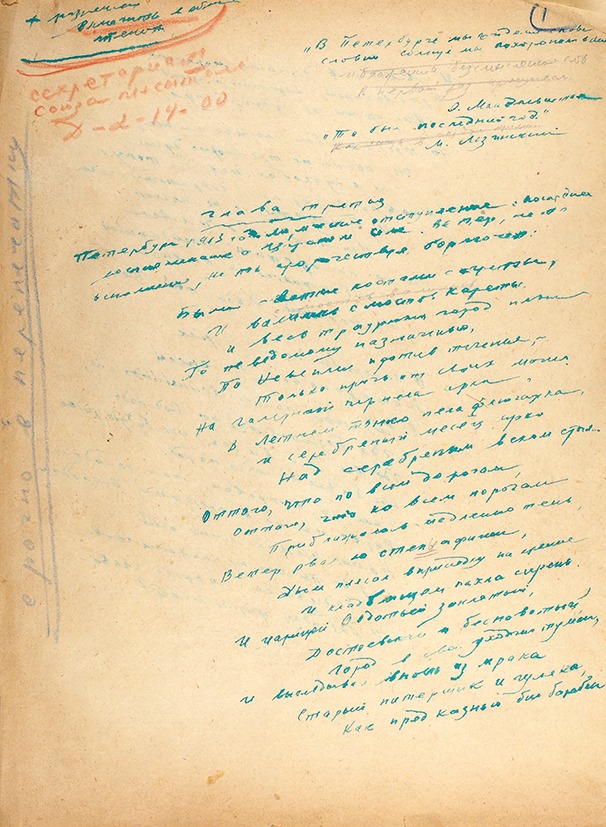 +
включить в общ
текст
секретариат
Союза писателей
1
„В Петербурге мы сойдемся снова
словно солнце мы похоронили
и блаженное бессмысленное слово
в первый раз
О. Мандельштам
„То был последний год."
М. Лозинский
срочно в перепечатку
глава третья
Петербург 1913 года. Лирическое отступление: последнее
воспоминание о Царском Селе. Ветер, не то
вспоминая, не то пророчествуя, бормочет:
Были святки кострами согреты,
И валились с мостов кареты,
и весь траурный город плыл
По неведомому назначенью,
По Неве иль против теченья, –
Только прочь от своих могил.
На Галерной чернела арка,
В Летнем тонко пела флюгарка,
и серебряный месяц ярко
Над серебряным веком стыл.
Оттого, что по всем дорогам,
Оттого, что ко всем порогам
Приближалась медленно тень,
Ветер рвал со стен афиши,
Дым плясал вприсядку на крыше
И кладбищем пахла сирень.
И царицей Авдотьей заклятый,
Достоевский и бесноватый,
Город в свой уходил туман,
И выглядывал вновь из мрака
Старый питерщик и гуляка,
Как пред казнью бил барабан